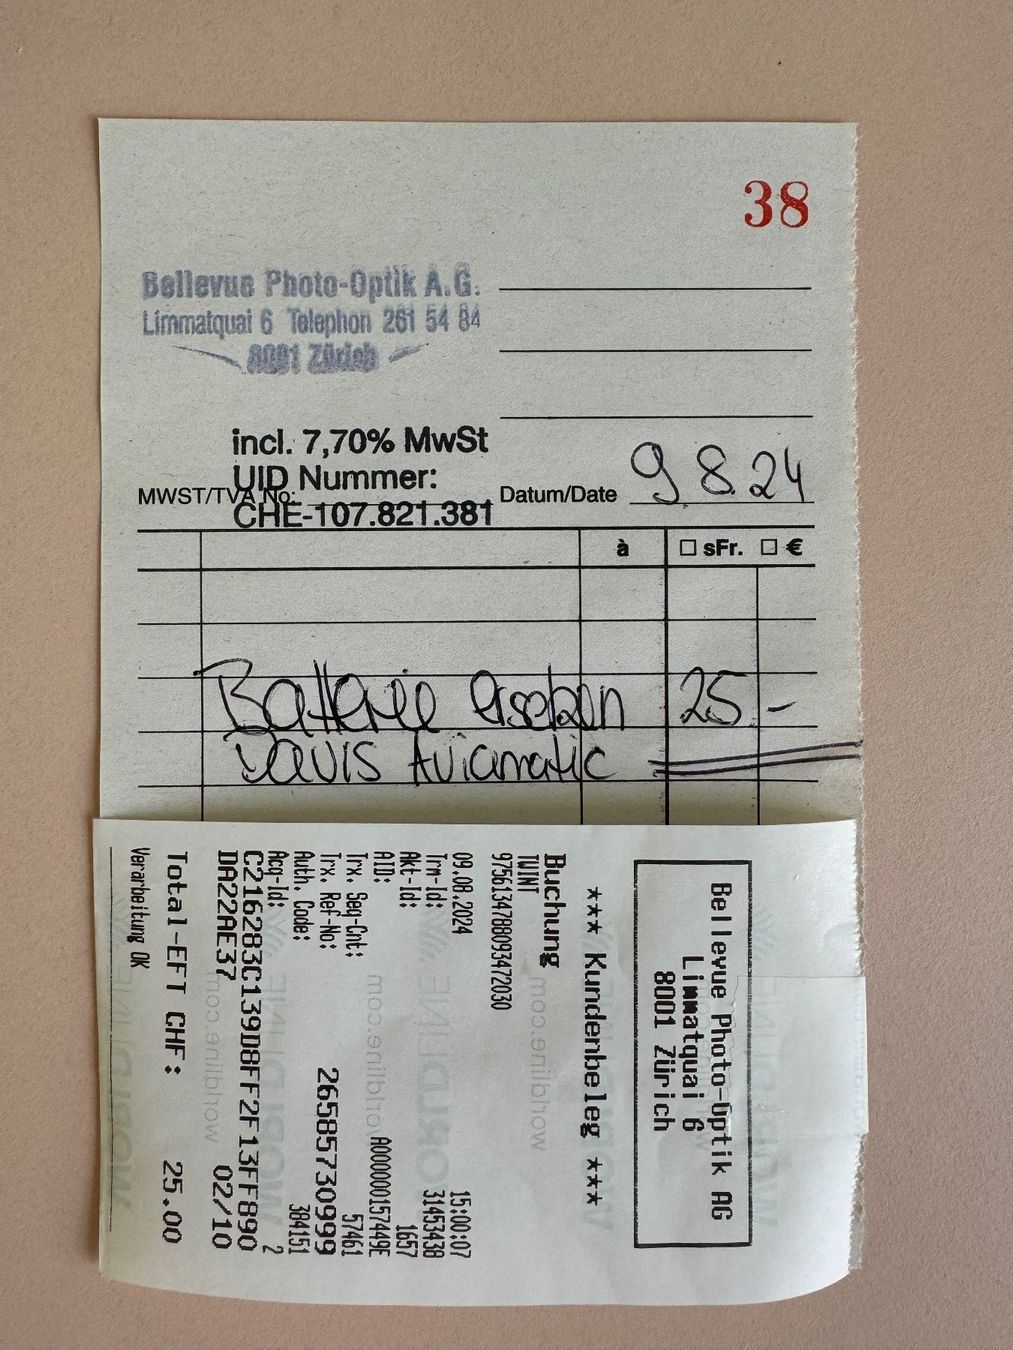 38
Bellevue Photo-Optik A.G.
Limmatquai 6 Telephon 261 54 84
8001 Zürich
incl. 7,70% MwSt
UID Nummer:
MWST/TVA No:
CHE-107.821.381
Datum/Date 9 8.24
à sFr. €
Batterie ersetzen 25 -
Davis Aviamatic
Bellevue Photo-Optik AG
Limmatquai 6
8001 Zürich
*** Kundenbeleg ***
Buchung
TWINT
9756134788093472030
09.08.2024 15:00:07
Trm-Id: 31453438
Akt-Id: 1657
AID: A000000157449E
Trx. Seq-Cnt: 57461
Trx. Ref-No: 26585730999
Auth. Code: 384151
Acq-Id: 2
C216283C139D8FF2F13FF890
DA22AE37 02/10
Total-EFT CHF: 25.00
Verarbeitung OK